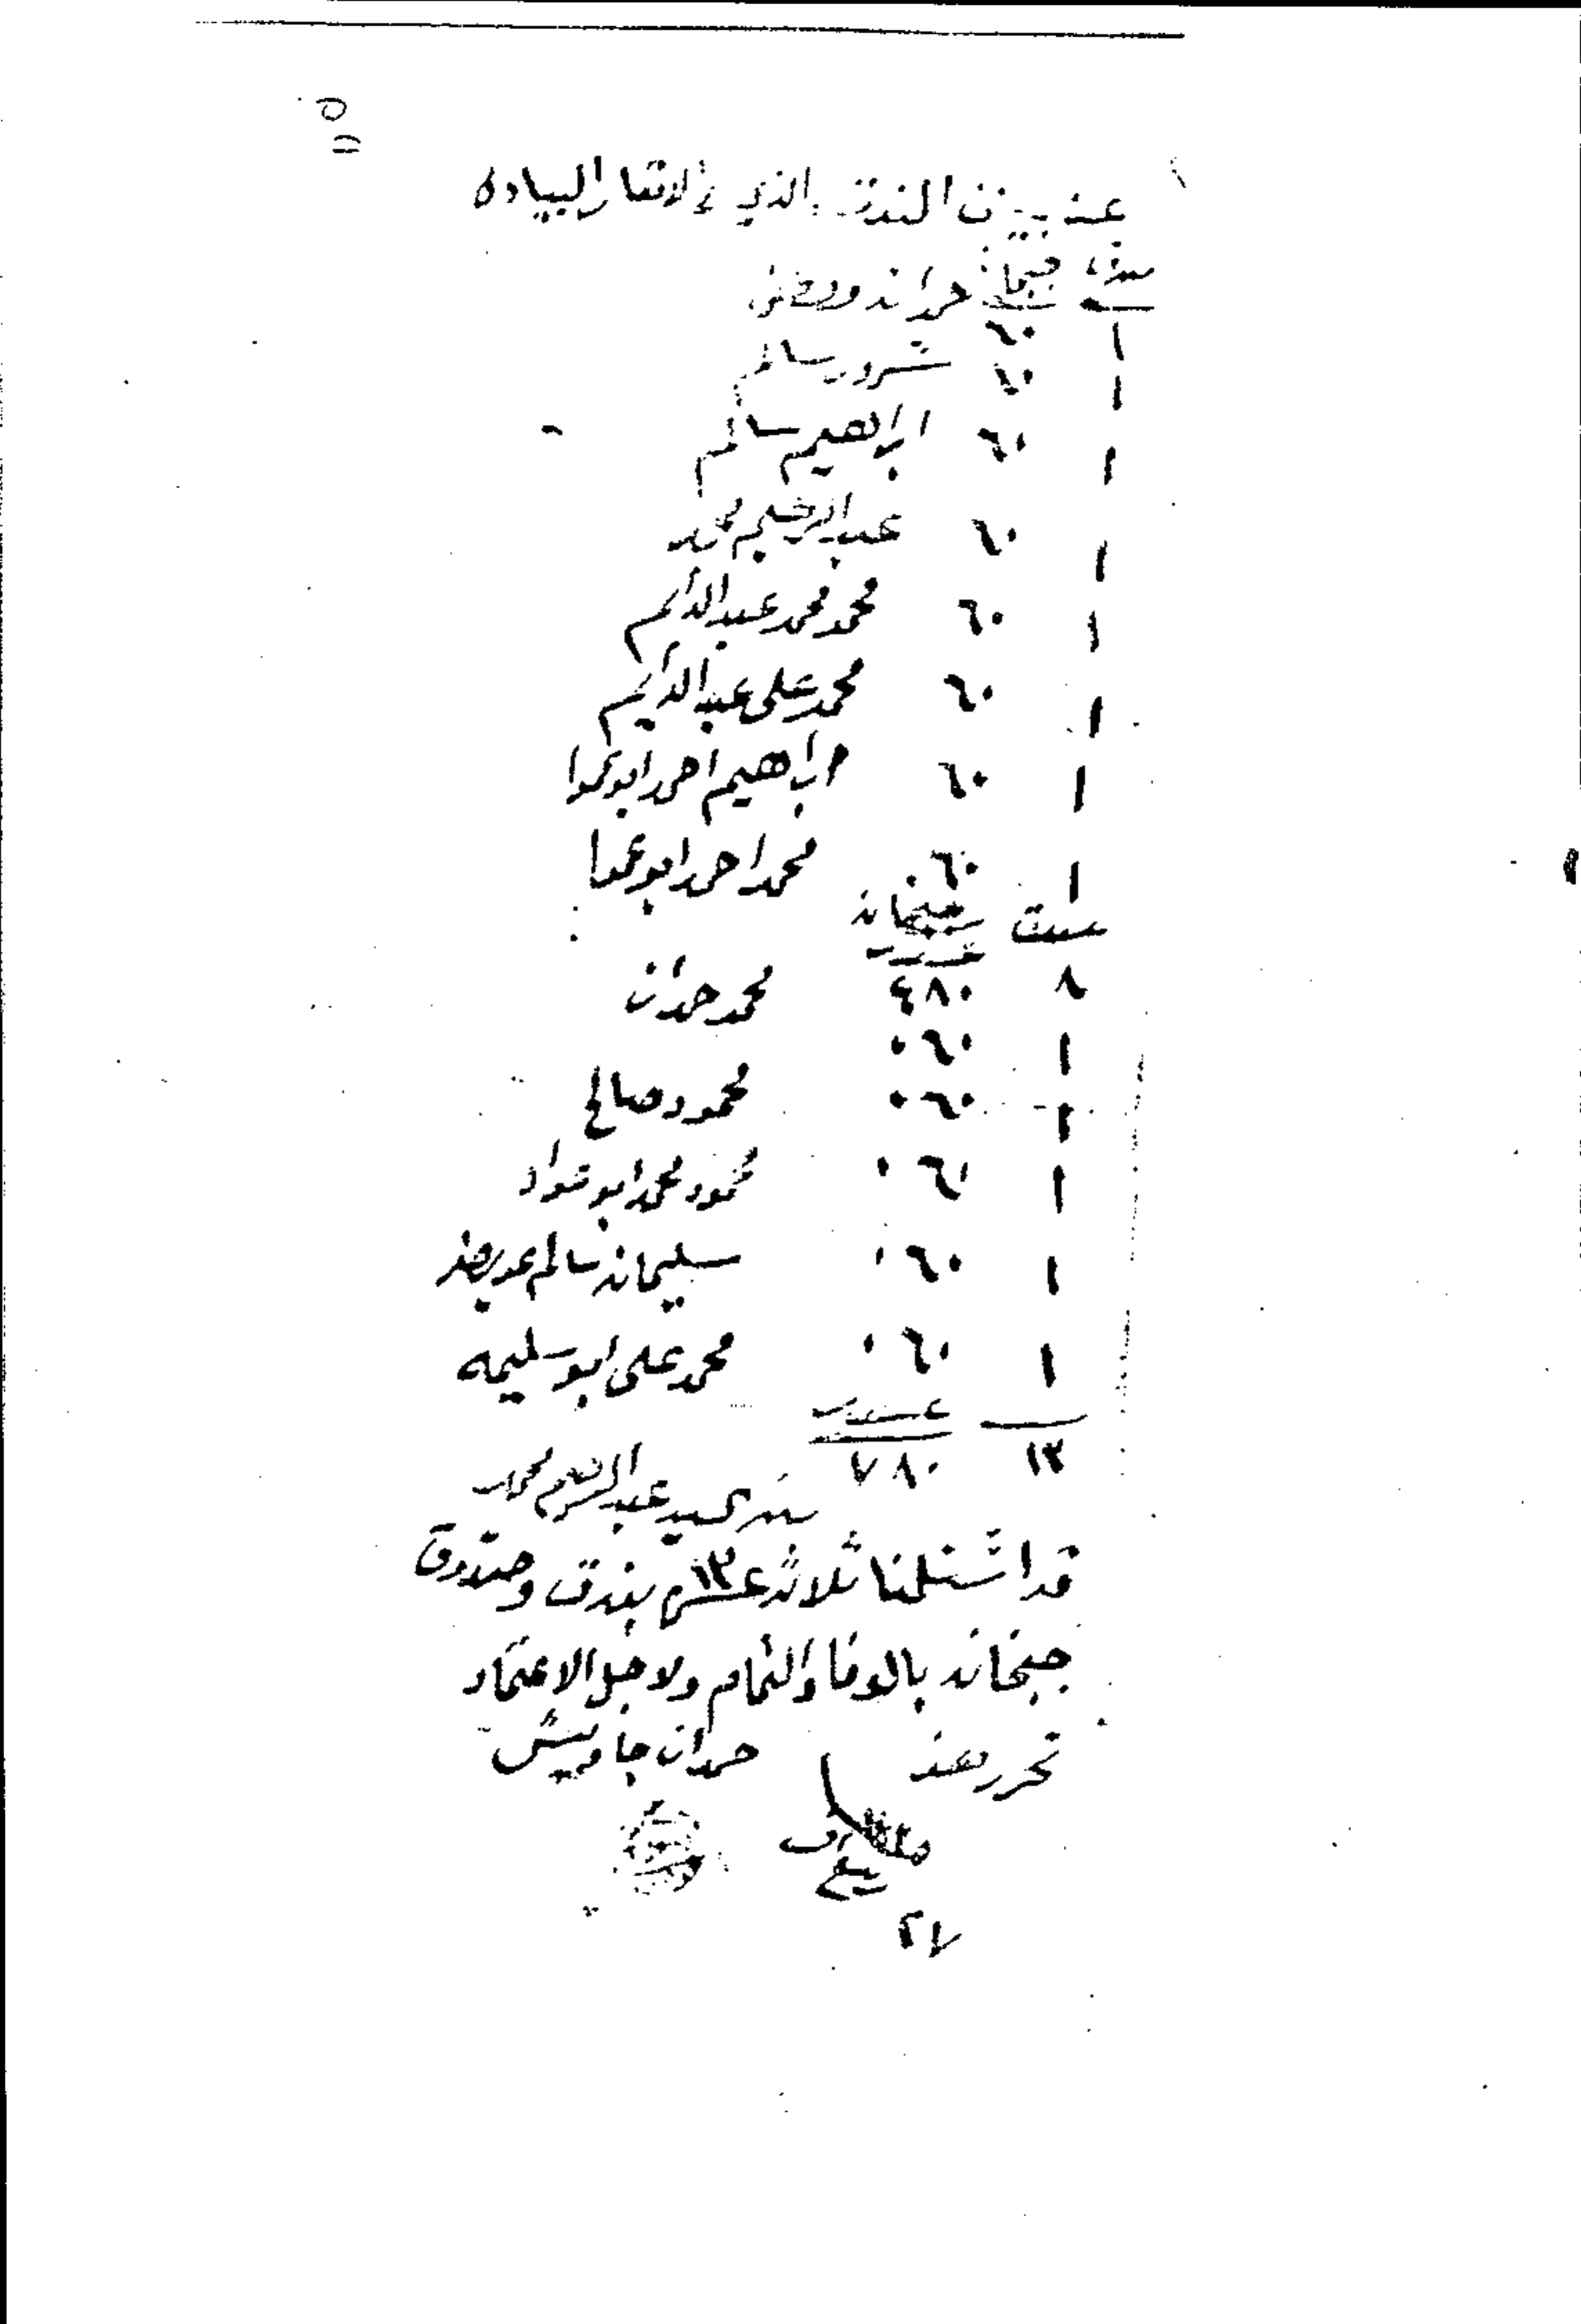 عن بيان البندق الذي في الانفار البيادة
بندق جبخانة
١ ٦٠ حمدان
١ ٦٠ سرور سالم
١ ٦٠ ابراهيم سالم
١ ٦٠ عبد الرحيم محمد
١ ٦٠ محمد محمد عبد الدايم
١ ٦٠ محمد علي عبد الدايم
١ ٦٠ ابراهيم احمد ابو عموا
١ ٦٠ محمد احمد ابو عموا
بندق جبخانه
٨ ٤٨٠
١ ٠٦٠ محمد حمدان
١ ٠٦٠ محمود صالح
١ ٠٦٠ محمود محمد ابو
١ ٠٦٠ سليمان سالم
١ ٠٦٠ محمد علي ابو سليمه
١٣ ٧٨٠
السيد عبد الرحيم محمد
قد استلمنا ثلاثة عشر ١٣ بندق وصندوق
جبخانه بالوفا والتمام ولاجل الاعتماد
تحرر هذا حمدان جاويش
٢٧